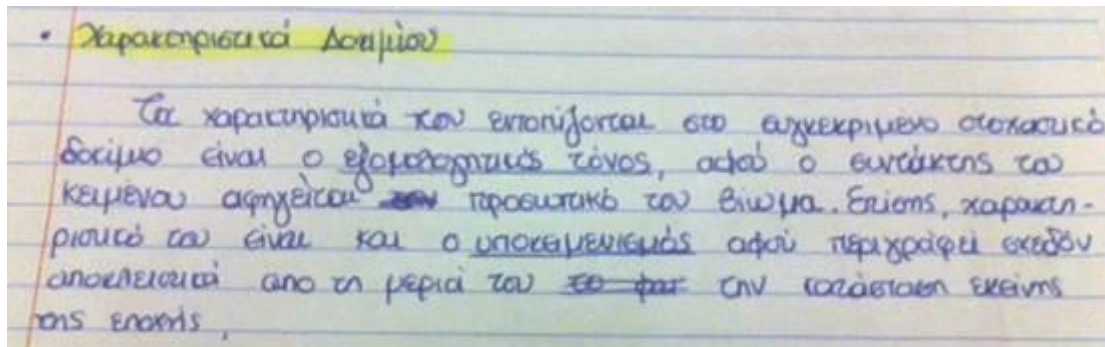 • Χαρακτηριστικά Δοκιμίου
Τα χαρακτηριστικά που εντοπίζονται στο συγκεκριμένο στοχαστικό
δοκίμιο είναι ο εξομολογητικός τόνος, αφού ο συντάκτης του
κειμένου αφηγείται προσωπικό του βίωμα. Επίσης, χαρακτη-
ριστικό του είναι και ο υποκειμενισμός αφού περιγράφει σχεδόν
αποκλειστικά απο τη μεριά του την κατάσταση εκείνης
της εποχής.